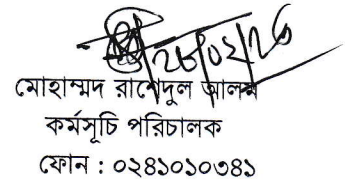 ২৮/০২/২৬
মোহাম্মদ রাশেদুল আলম
কর্মসূচি পরিচালক
ফোন : ০২৪১০১০৩৪১